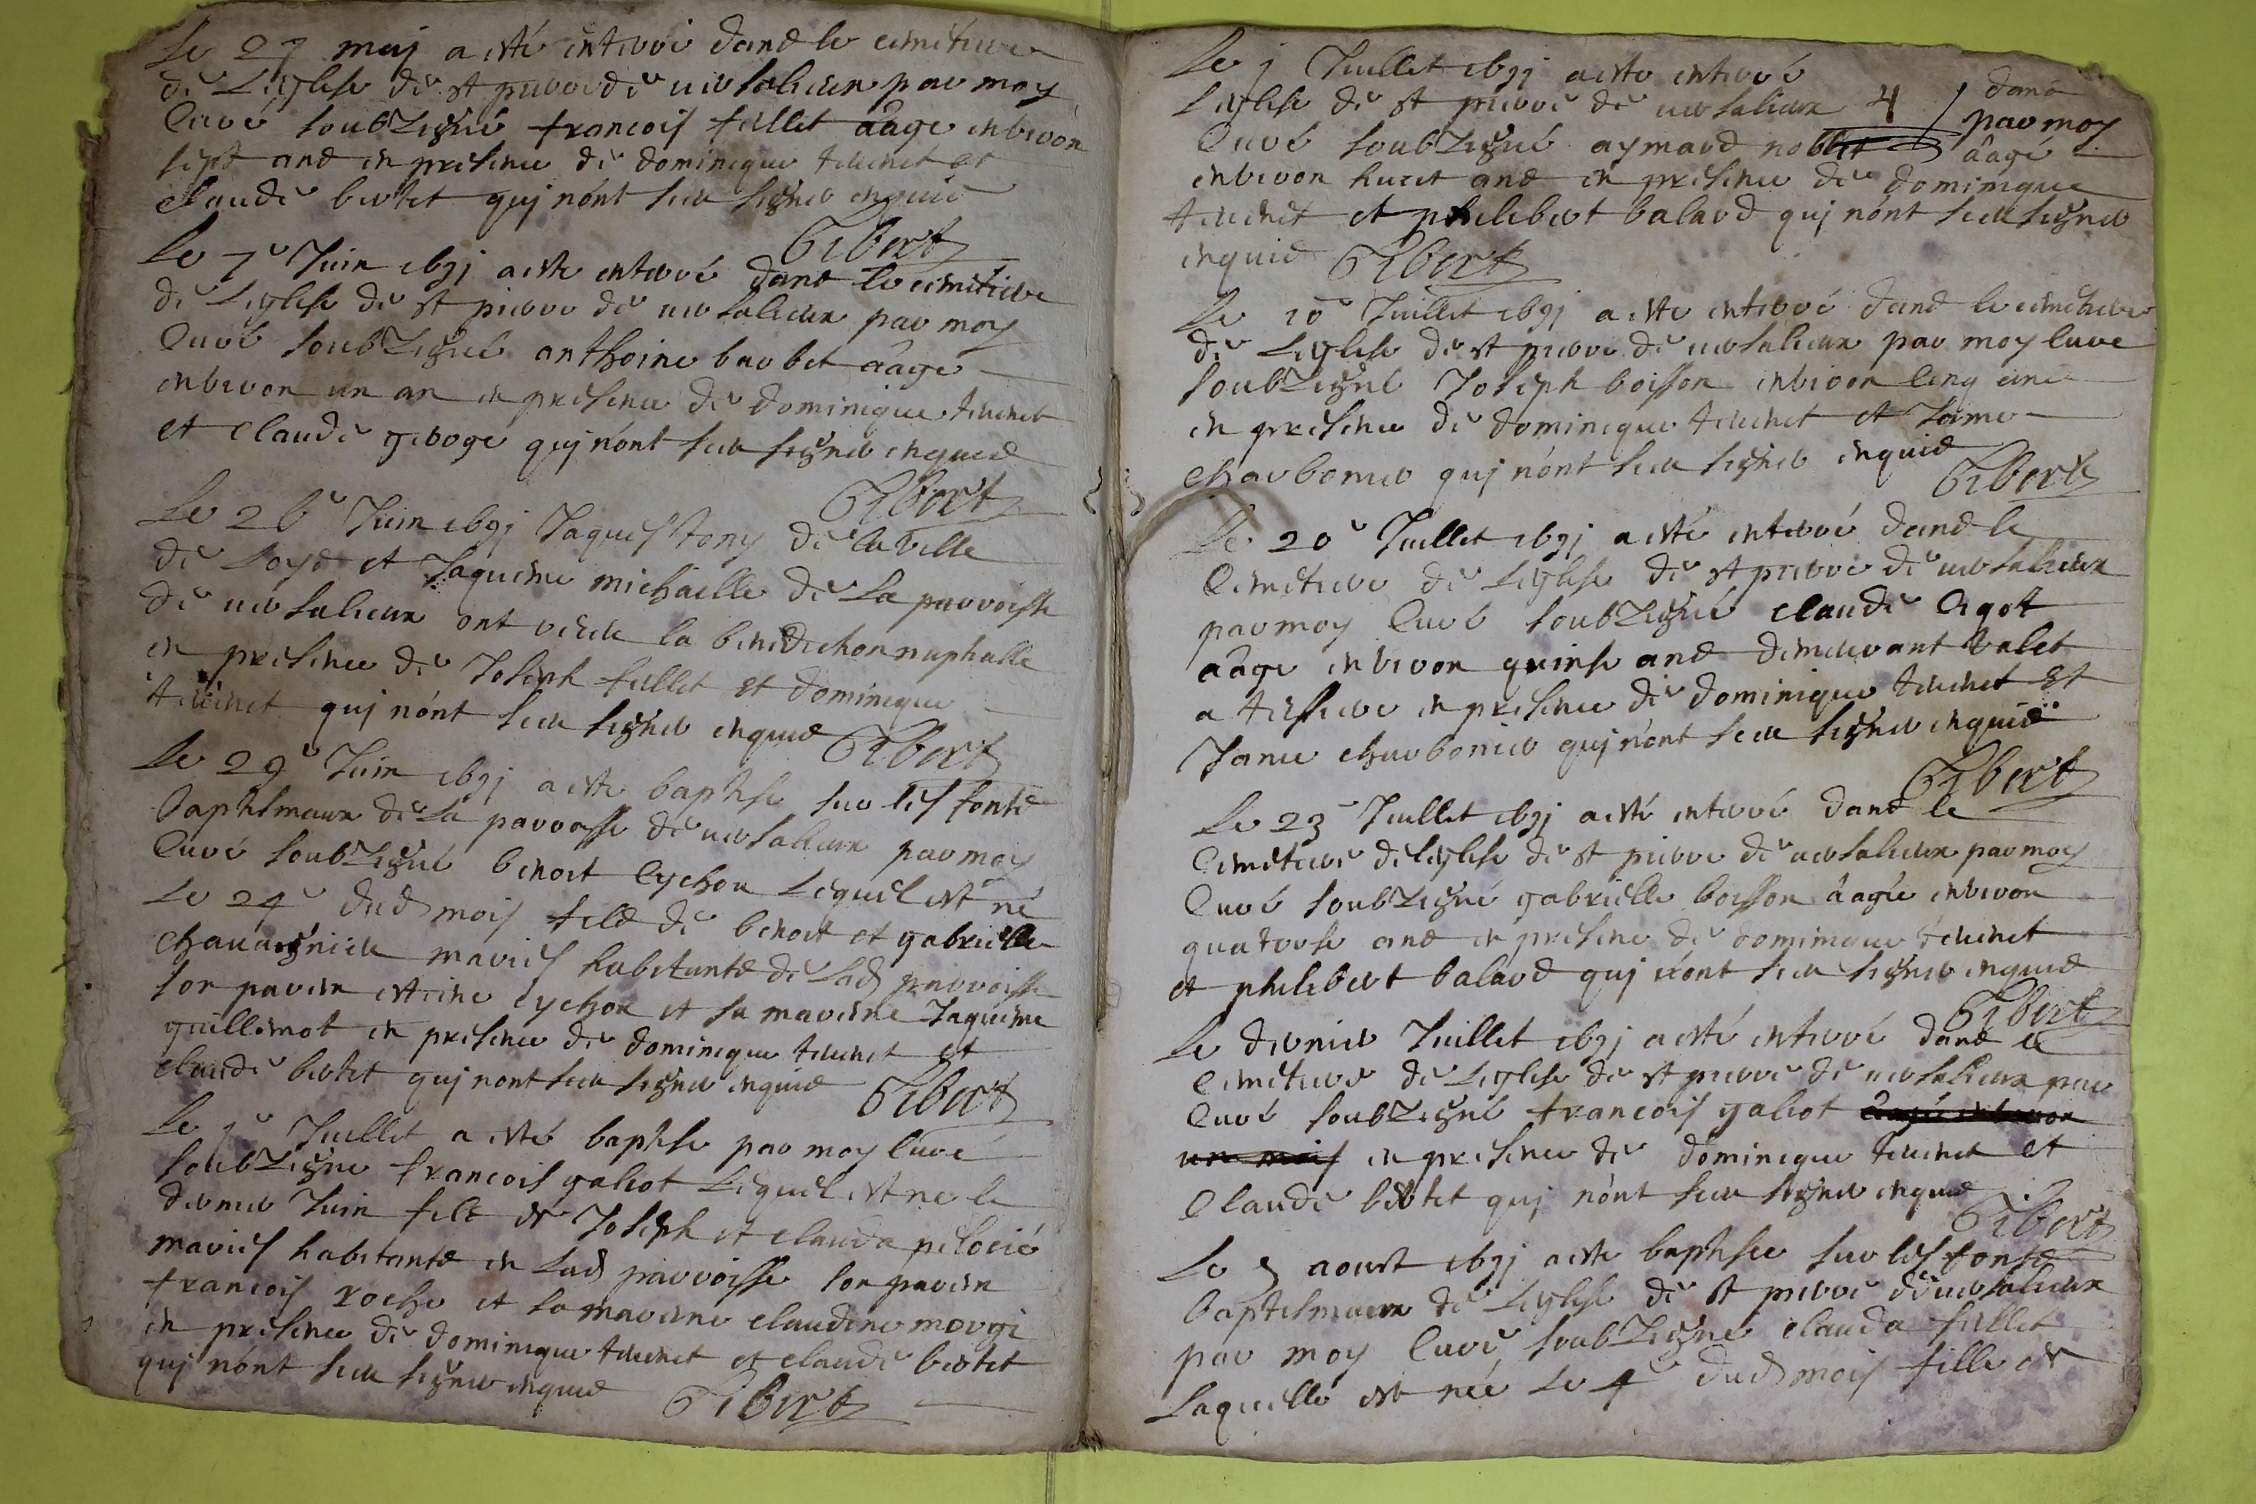 Le 27 maj a esté enterré dans le cimetiere
de Leglise de st pierre de versalieux par moy
Curé soubzsigné francois fillet aage environ
sept ans en presence de dominique tevenet et
claude bertet quj nónt sceu signer enquis
Gibert
Le 7e Juin 1691 a esté enterré dans le cimetiere
de Leglise de st pierre de versalieux par moy
Curé soubzsigné anthoine barbet aage
environ un an en presence de dominique tevenet
et claude george quj nónt sceu signer enquis
Gibert
Le 26e Juin 1691 Jaques tony de la ville
de et Jaquéme michaille de La parroisse
de versalieux ont receu la benediction nuptialle
en presence de Joseph fillet et dominique
tevenet quj nónt sceu signer enquis Gibert
Le 29e Juin 1691 a esté baptisé sur les fonts
baptismaux de La parroisse de versalieux par moy
Curé soubzsigné benoit Cychon Lequel est né
Le 24e dud mois fils de benoit et gabrielle
chavagnieu mariés habitants de Lad parroisse
son parein estiene Cychon et sa mareine Jaquéme
guillemot en presence de dominique tevenet et
claude bertet quj nont sceu signer enquis Gibert
Le 1e Juillet a esté baptisé par moy Curé
soubzsigné francois galiot Lequel est né le
dernier Juin fils de Joseph et clauda pelocié
mariés habitants en Lad parroisse son parein
francois roche et sa mareine claudine morgi
en presence de dominique tevenet et claude bertet
quj nónt sceu signer enquis Gibert
Le 1 Juillet 1691 a esté enterré dans
Leglise de st pierre de versalieux 4 par moy
Curé soubzsigné aymard noblet aagé
environ huict ans en presence de dominique
tevenet et philebert balard quj nónt sceu signer
enquis Gibert
Le 10e Juillet 1691 a esté enterré dans le cimetiere
de Leglise de st pierre de versalieux par moy Curé
soubzsigné Joseph boisson environ Cinq ans
en presence de dominique tevenet et Jame
charbonier quj nónt sceu signer enquis
Gibert
Le 20e Juillet 1691 a esté enterré dans le
Cimetiere de Leglise de st pierre de versalieux
par moy Curé soubzsigné claude Cigot
aage environ quinse ans demeurant valet
a en presence de dominique tevenet et
Jame charbonier quj nónt sceu signer enquis
Gibert
Le 23e Juillet 1691 a esté enterré dans le
Cimetiere de Leglise de st pierre de versalieux par moy
Curé soubzsigné gabrielle boisson aagée environ
quatorse ans en presence de dominique tevenet
et philebert balard quj nónt sceu signer enquis
Gibert
Le dernier Juillet 1691 a esté enterré dans le
Cimetiere de Leglise de st pierre de versalieux par
Curé soubzsigné francois galiot aagé environ
un mois en presence de dominique tevenet et
Claude bertet quj nónt sceu signer enquis
Gibert
Le 5 aoust 1691 a esté baptisée sur les fonts
baptismaux de Leglise de st pierre de versalieux
par moy Curé soubzsigné clauda fillet
Laquelle est née Le 4e dud mois fille de